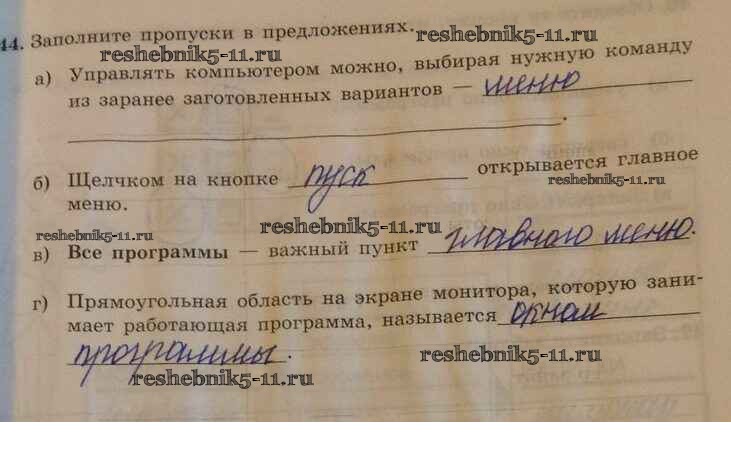 44. Заполните пропуски в предложениях.
reshebnik5-11.ru
reshebnik5-11.ru
а) Управлять компьютером можно, выбирая нужную команду
из заранее заготовленных вариантов — меню
reshebnik5-11.ru
б) Щелчком на кнопке пуск открывается главное
меню.
reshebnik5-11.ru
reshebnik5-11.ru
reshebnik5-11.ru
в) Все программы — важный пункт главного меню.
г) Прямоугольная область на экране монитора, которую зани-
мает работающая программа, называется окном
программы.
reshebnik5-11.ru
reshebnik5-11.ru